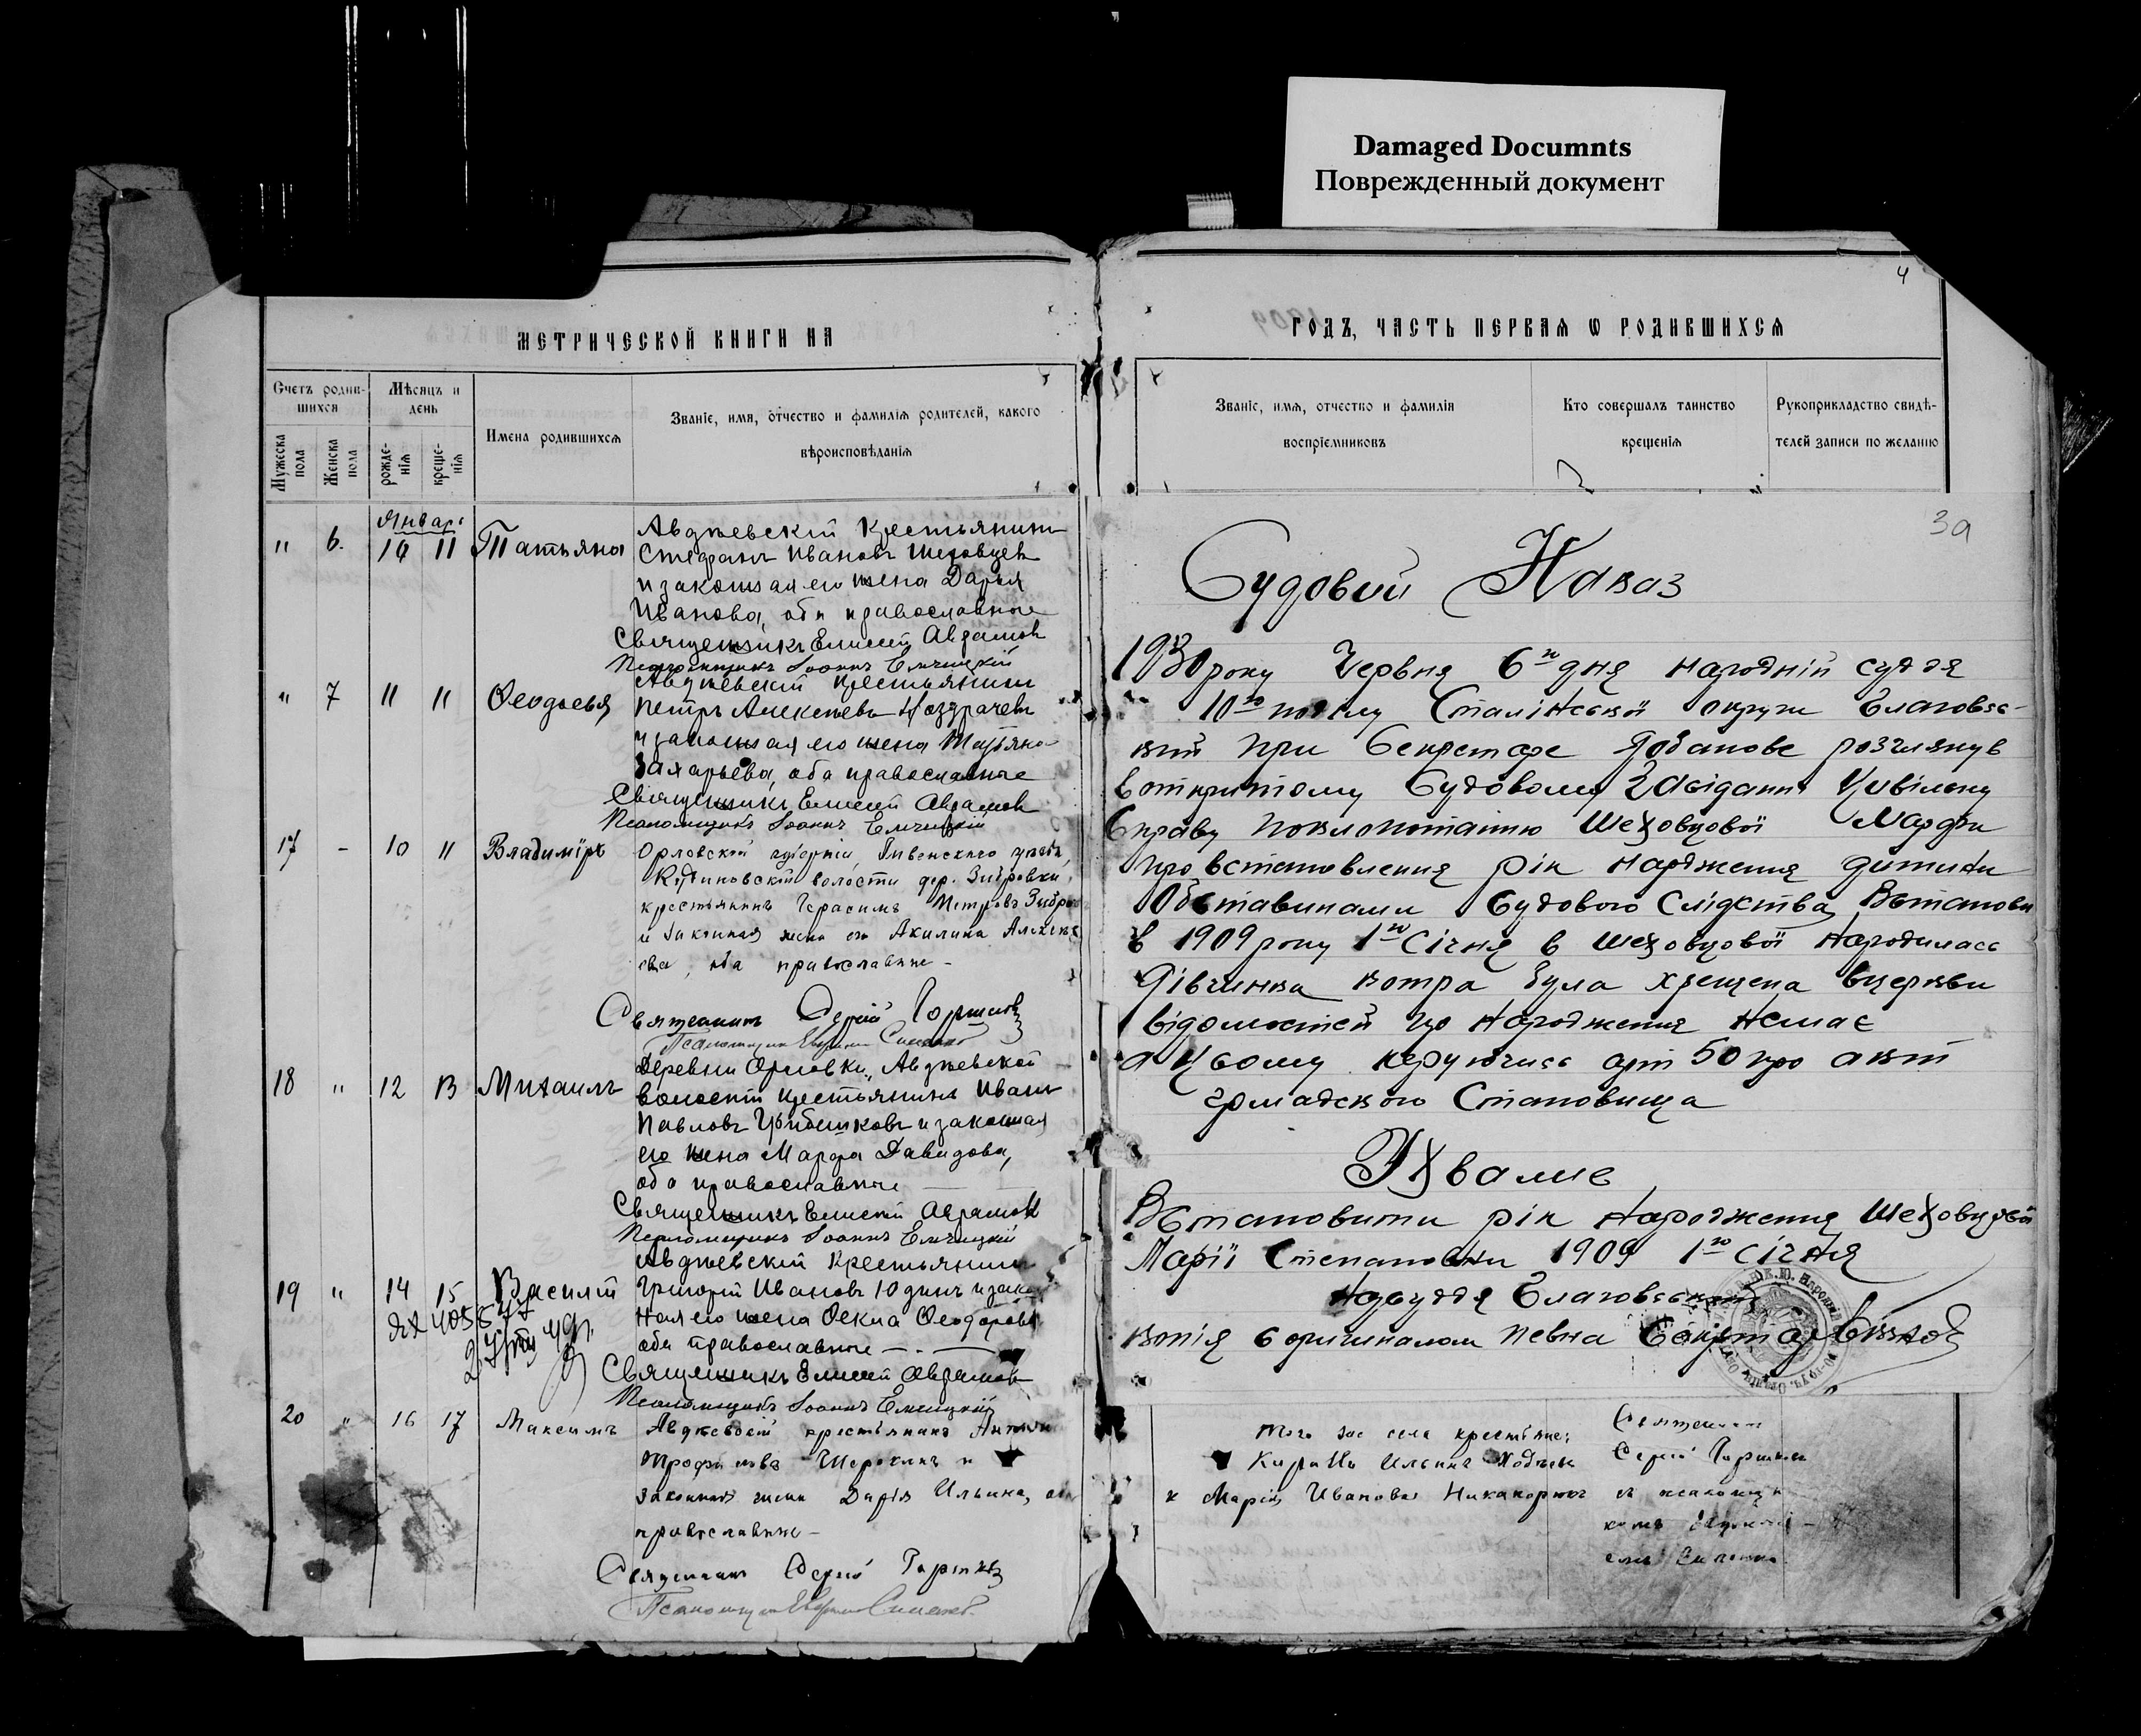 Damaged Documnts
Поврежденный документ
МЕТРИЧЕСКОЙ КНИГИ НА
Счетъ родив-
шихся
Мѣсяцъ и
день
Мужеска
пола
Женска
пола
рожде-
нія
креще-
нія
Имена родившихся
Званіе, имя, отчество и фамилія родителей, какого
вѣроисповѣданія
Январь
" 6. 10 11 Татьяна
Авдѣевскій Крестьянинъ
Стефанъ Ивановъ Шеховцевъ
и законная его жена Дарья
Иванова, оба православные
Священникъ Елисей Авраамовъ
Псаломщикъ Іоаннъ Ельчицкій
" 7 11 11 Ѳеодосья
Авдѣевскій крестьянинъ
Петръ Алексѣевъ Ноздрачевъ
и законная его жена Татьяна
Захарьева, оба православные
Священникъ Елисей Авраамовъ
Псаломщикъ Іоаннъ Ельчицкій
17 - 10 11 Владиміръ
Орловской губерніи, Ливенскаго уѣзда,
волости дер. Зибровки,
крестьянинъ Герасимъ Петровъ
и законная жена его Акилина Алексѣ
ева, оба православные -
Священникъ Сергій
18 " 12 13 Михаилъ
Деревни Орловки, Авдѣевской
волости крестьянинъ Иванъ
Павловъ Грибешковъ и законная
его жена Марфа Давидова,
оба православные
Священникъ Елисей Авраамовъ
Псаломщикъ Іоаннъ Ельчицкій
19 " 14 15 Василій
Авдѣевскій Крестьянинъ
Григорій Ивановъ Юдинъ и закон
ная его жена Ѳекла Ѳеодорова
оба православные
Священникъ Елисей Авраамовъ
Псаломщикъ Іоаннъ Ельчицкій
20 " 16 17 Максимъ
Авдѣевскій крестьянинъ
и
законная жена Дарія Ильина, оба
православные -
Священникъ Сергій
4
1909
ГОДЪ, ЧАСТЬ ПЕРВАЯ Ѡ РОДИВШИХСЯ
Званіе, имя, отчество и фамилія
воспріемниковъ
Кто совершалъ таинство
крещенія
Рукоприкладство свидѣ-
телей записи по желанію
3а
Судовий Наказ
1930 року Червня 6го дня народній суддя
10го Сталінської округи Благовєс-
кий при Секретаре розглянув
в откритому Судовому Засіданні Цивільну
Справу поклопотанню Шеховцової Марфи
про встановлення рік народження дитини
Обставинами Судового Слідства Встанови
в 1909 року 1го Січня в Шеховцової Народилась
дівчинка котра була хрещена вцеркви
відомостей про народження немає
а цьому керуючись арт 50 про акт
громадського Становища
Ухвалив
Встановити рік Народження Шеховцової
Марії Степановни 1909 1го Січня
Нарсуддя Благовєський
копія соригиналом певна Секретар
Того же села крестьяне:
Кириллъ Ильинъ
и Марія Иванова
Священникъ
Сергій
съ псаломщи
комъ